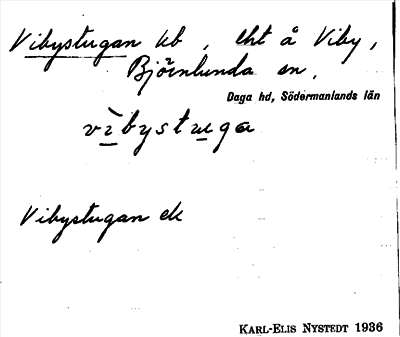 Vibystugan ub, lht å Viby,
Björnlunda sn.
Daga hd, Södermanlands län
vìbystuga
Vibystugan ek
KARL-ELIS NYSTEDT 1936